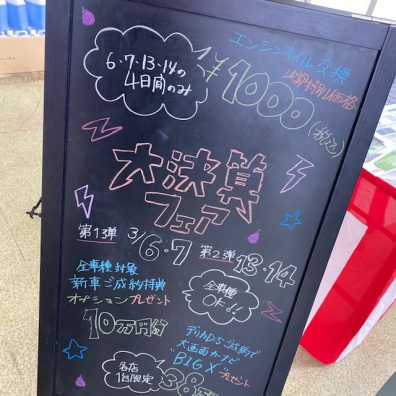 6・7・13・14の
4日間のみ
エンジンオイル交換
決算特別価格
¥1000
(税込)
大決算
フェア
第1弾 3/6・7 第2弾 13・14
全車種対象
新車ご成約特典
オプションプレゼント
10万円分
全車種
OK!!
デリカD5ご成約で
大画面カーナビ
"BIG X"プレゼント
各店
1台限定
38万